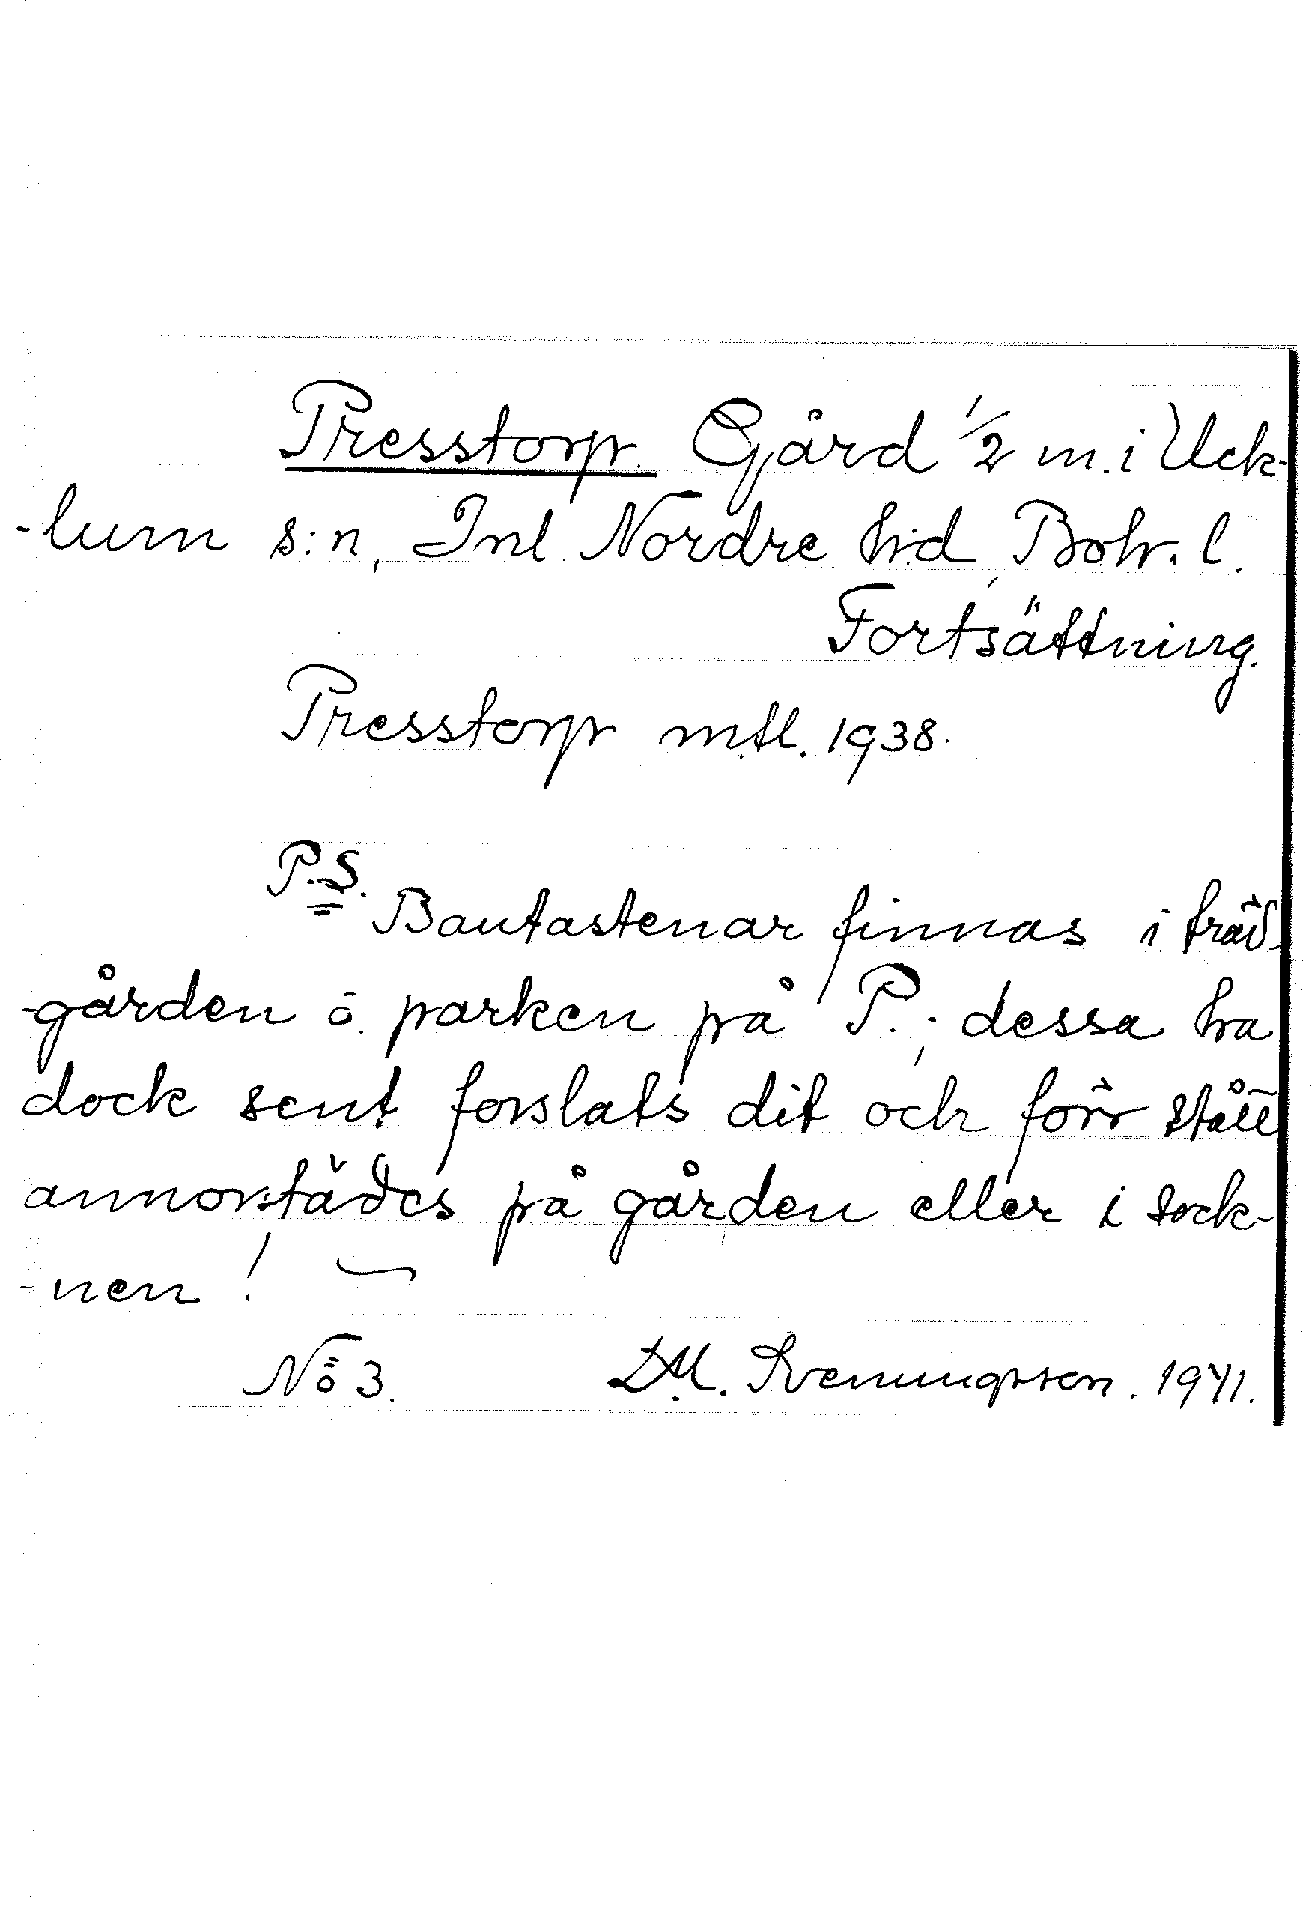 Presstorp. Gård 1/2 m. i Uck-
-lum s:n, Inl. Nordre hd, Boh. l.
Fortsättning.
Presstorp mtl. 1938.
P.S.
Bautastenar finnas i träd-
-gården o. parken på P.; dessa ha
dock sent forslats dit och förr stått
annorstädes på gården eller i sock-
-nen!
No 3. D.M. Sveningsson. 1941.